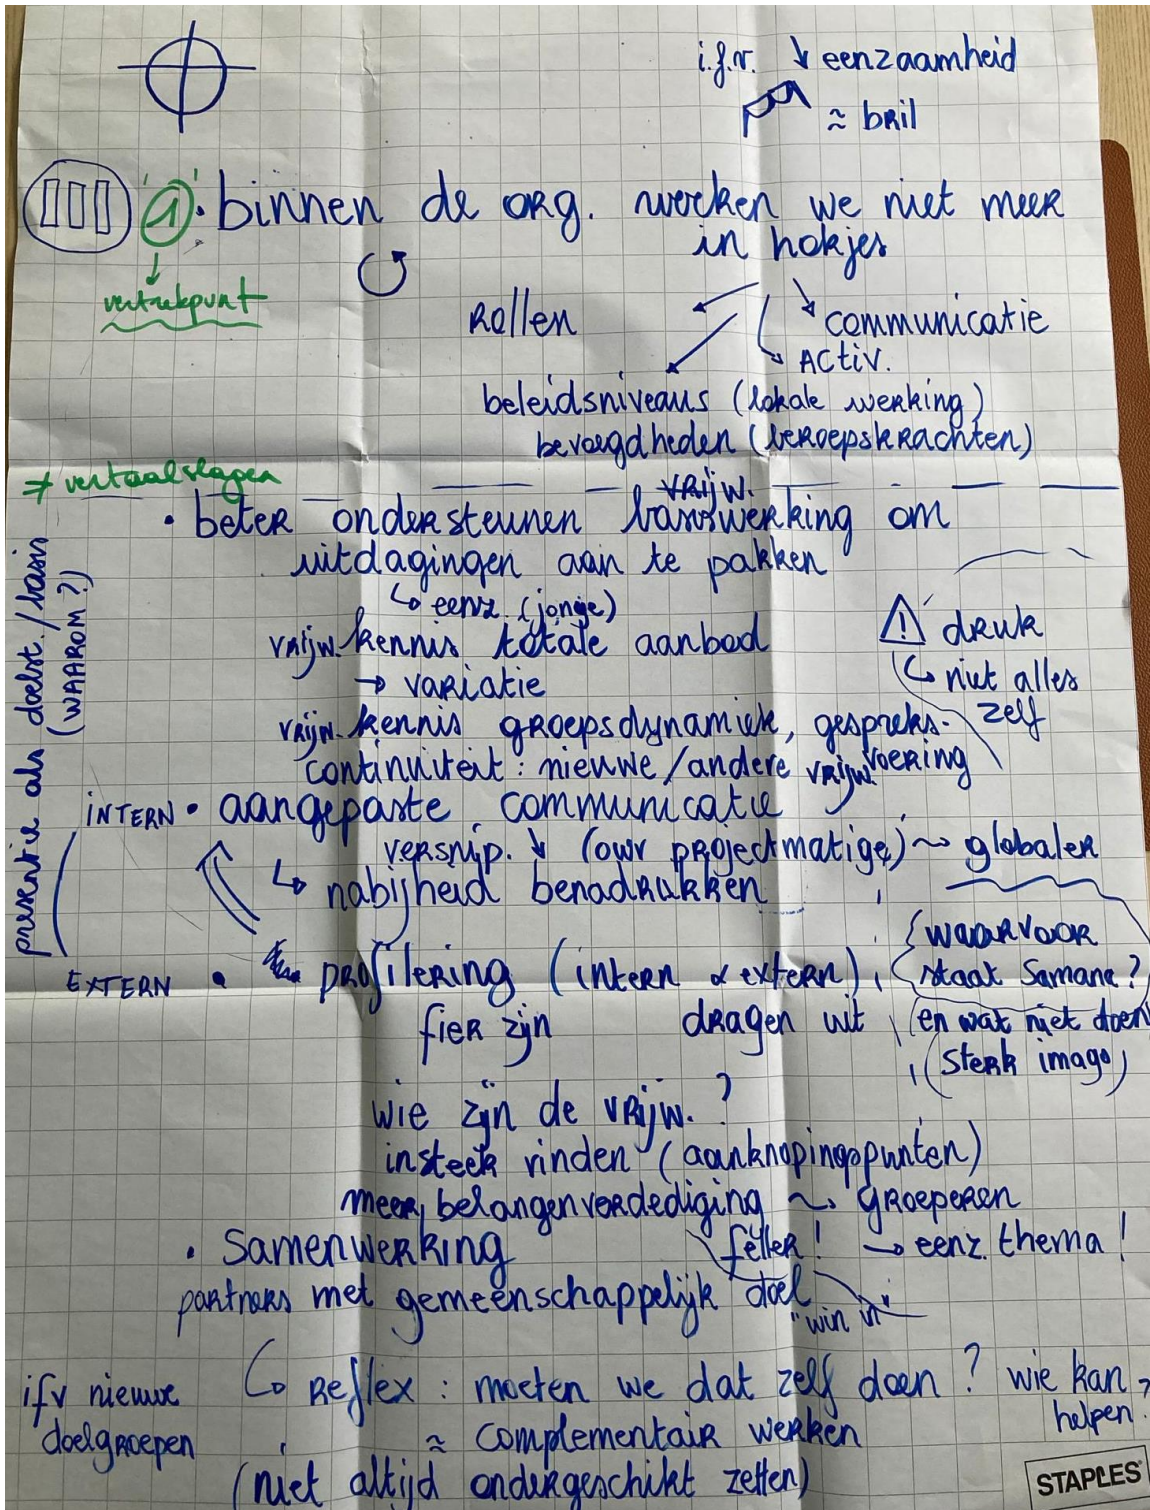 i.f.v. ↓ eenzaamheid
≈ bril
1. binnen de org. werken we niet meer
in hokjes
vertrekpunt
Rollen
communicatie
Activ.
beleidsniveaus (lokale werking)
bevoegdheden (beroepskrachten)
≠ vertaalslagen
vrijw.
• beter ondersteunen werking om
uitdagingen aan te pakken
↳ eenz. (jonge)
vrijw. kennis totale aanbod
→ variatie
vrijw. kennis groepsdynamiek, gespreks-
voering
continuïteit: nieuwe/andere vrijw.
⚠ druk
↳ niet alles
zelf
presentie als doelst./basis
(WAAROM?)
INTERN • aangepaste communicatie
versnip. ↓ (owv projectmatige) ~ globaler
↳ nabijheid benadrukken
EXTERN • profilering (intern & extern)
fier zijn dragen uit
waarvoor
staat Samana?
en wat niet doen
(sterk imago)
wie zijn de vrijw.?
insteek vinden (aanknopingspunten)
meer belangenverdediging ~ groeperen
feller! → eenz. thema!
• Samenwerking
partners met gemeenschappelijk doel
"win
ifv nieuwe
doelgroepen
↳ Reflex: moeten we dat zelf doen? wie kan
helpen?
≈ complementair werken
(niet altijd ondergeschikt zetten)
STAPLES